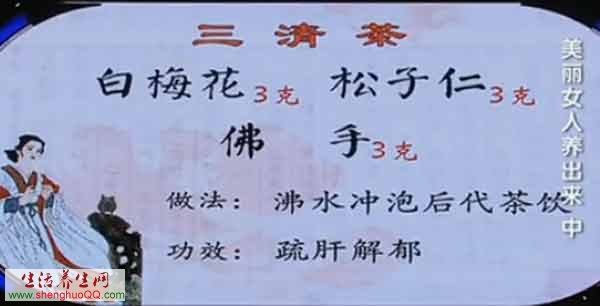 三清茶
白梅花3克 松子仁3克
佛 手3克
做法：沸水冲泡后代茶饮
功效：疏肝解郁
美丽女人养出来 中
生活养生网
www.shenghuoQQ.com